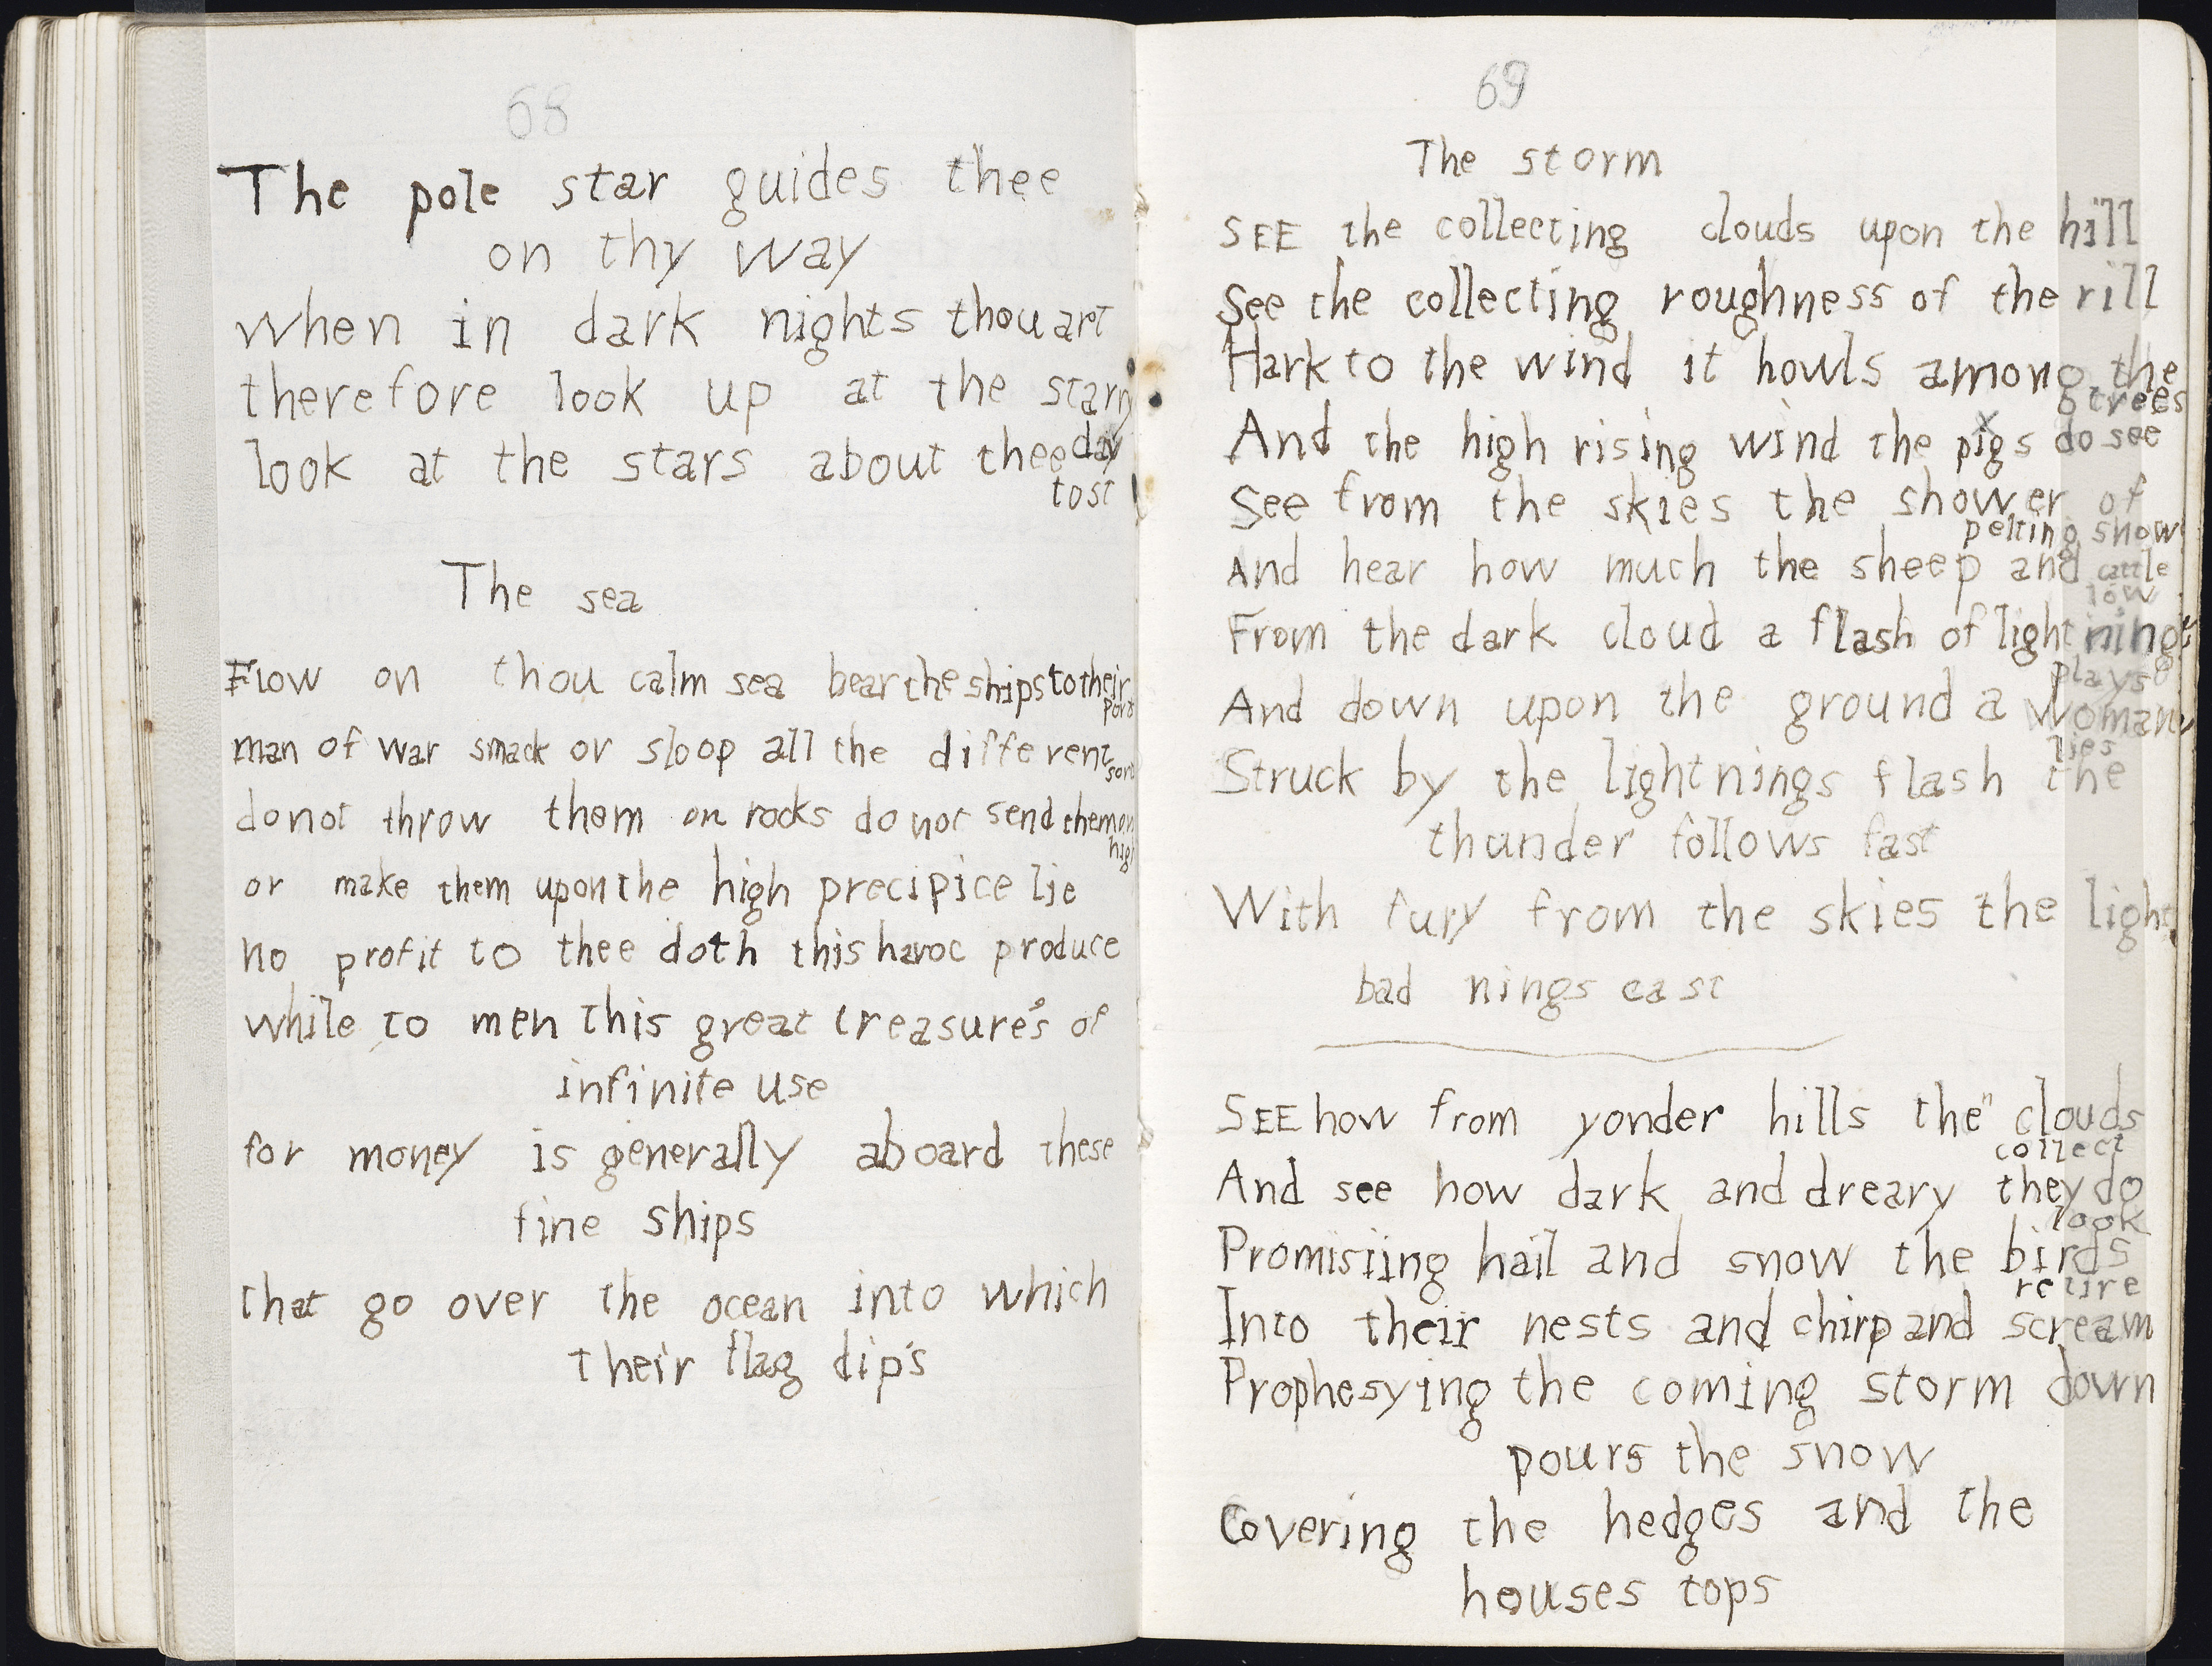 68
The pole star guides thee
on thy way
when in dark nights thou art
therefore look up at the starry
day
look at the stars about thee
tost
The sea
Flow on thou calm sea bear the ships to their
port
man of war smack or sloop all the different
sort
do not throw them on rocks do not send them on
high
or make them upon the high precipice lie
no profit to thee doth this havoc produce
while to men this great treasure's of
infinite use
for money is generally aboard these
fine ships
that go over the ocean into which
their flag dip's
69
The storm
SEE the collecting clouds upon the hill
See the collecting roughness of the rill
Hark to the wind it howls among the
trees
And the high rising wind the pigs do see
See from the skies the shower of
pelting snow
And hear how much the sheep and cattle
low
From the dark cloud a flash of lightning
plays
And down upon the ground a woman
lies
Struck by the lightnings flash the
thunder follows fast
With fury from the skies the light
bad nings cast
SEE how from yonder hills the" clouds
collect
And see how dark and dreary they do
look
Promisiing hail and snow the birds
retire
Into their nests and chirp and scream
Prophesying the coming storm down
pours the snow
Covering the hedges and the
houses tops